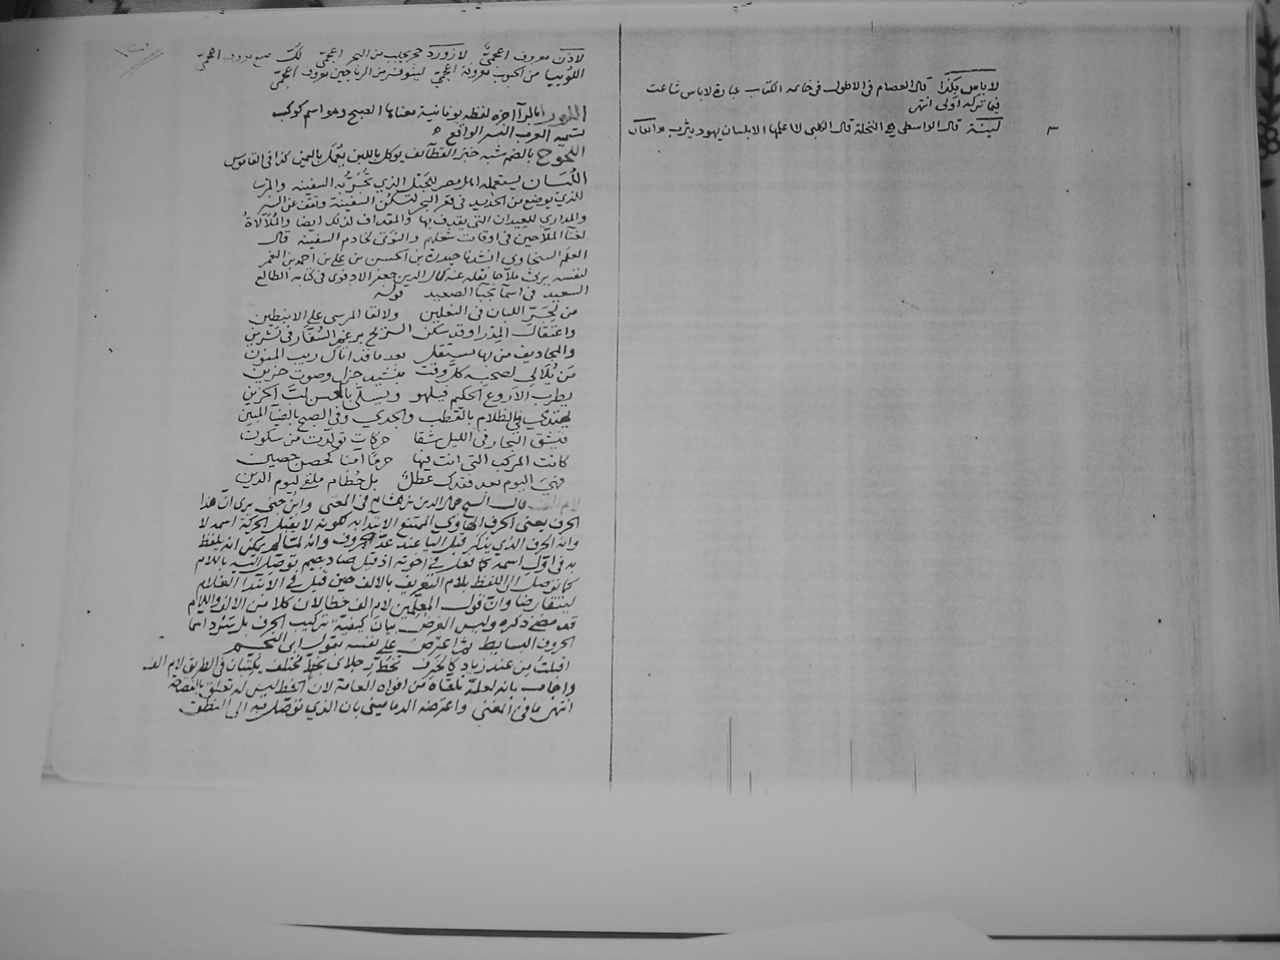 لا باس بكذا قال العصام في الاطول في خاتمة الكتاب عبارة لا باس شاعت
فيما تركه اولى انتهى
لينة قال الواسطي هي النخلة قال الكلبي لا اعلمها الا بلسان يهود يثرب
لاذن معروف اعجميّ لازورد حجر يجلب من البحر اعجميّ لكّ صمغ معروف اعجميّ
اللوبيا من الحبوب معروفة اعجميّ لينوفر من الرياحين معروف اعجميّ
بالراء آخره لفظه يونانية معناها الصبح وهو اسم كوكب
تسميه العرب النسر الواقع
اللحوح بالضم شبه خبز القطائف يوكل باللبن يعمل باليمن كذا في القاموس
اللبان يستعمله اهل مصر للحبل الذي تجرّ به السفينة والمرسا
الذي يوضع من الحديد في قعر البحر لتمكن السفينة وتقف عن السير
والمداري للعيدان التي يقذف بها والمقداف لذلك ايضا والملالاة
لغنا الملاحين في اوقات شغلهم والنوتى لخادم السفينة قال
العلم السخاوي انشدنا حيدرة بن الحسن بن علي بن احمد بن الغمر
لنفسه يرثي ملاحا نقله عنه كمال الدين جعفر الادفوي في كتابه الطالع
السعيد في اسما نجبا الصعيد قوله
من لجرّ اللبان في النعلين ولالقا المرسى على الانبطين
واعتقال المدرا وقد سكن الريح برغم السفار في تشرين
والمجاديف من لها مستقل بعد ما قد اتاك ريب المنون
من يلالي لصحبه كل وقت بنشيد جزل وصوت حزين
يطرب الاروع الحكيم فيلهو ويسلي بالحسن لبّ الحزين
يهتدي في الظلام بالقطب والجدي وفي الصبح بالضيا المبين
فيشق البحار في الليل شقا حركات تولدت من سكون
كانت المركب التي انت فيها حرما آمنا كحصن حصين
فهي اليوم بعد فقدك عطل بل حطام ملقى ليوم الدين
لام الف قال الشيخ جمال الدين بن هشام في المغني وابن جني يرى ان هذا
الحرف يعني الحرف الهاوي الممتنع الابتدا به لكونه لا يقبل الحركة اسمه لا
وانه الحرف الذي يذكر قبل اليا عند عدّ الحروف وانه لما لم يمكن ان يلفظ
به في اول اسمه كما فعل في اخوته اذ قيل صاد جيم توصل اليه باللام
كما توصل الى اللفظ بلام التعريف بالالف حين قيل في الابتدا الغلام
ليتقارضا وان قول المعلمين لام الف خطا لان كلا من الالف واللام
قد مضى ذكره وليس الغرض بيان كيفية تركيب الحروف بل سرد اسما
الحروف البسايط ثم اعترض على نفسه بقول ابي النجم
اقبلت من عند زياد كالخرف تخط رجلاي بخط مختلف تكتبان في الطريق لام الف
واجاب بانه لعله تلقاه من افواه العامة لان الخط ليس له تعلق بالفصاحة
انتهى ما في المغني واعترضه الدماميني بان الذي توصل به الى النطق